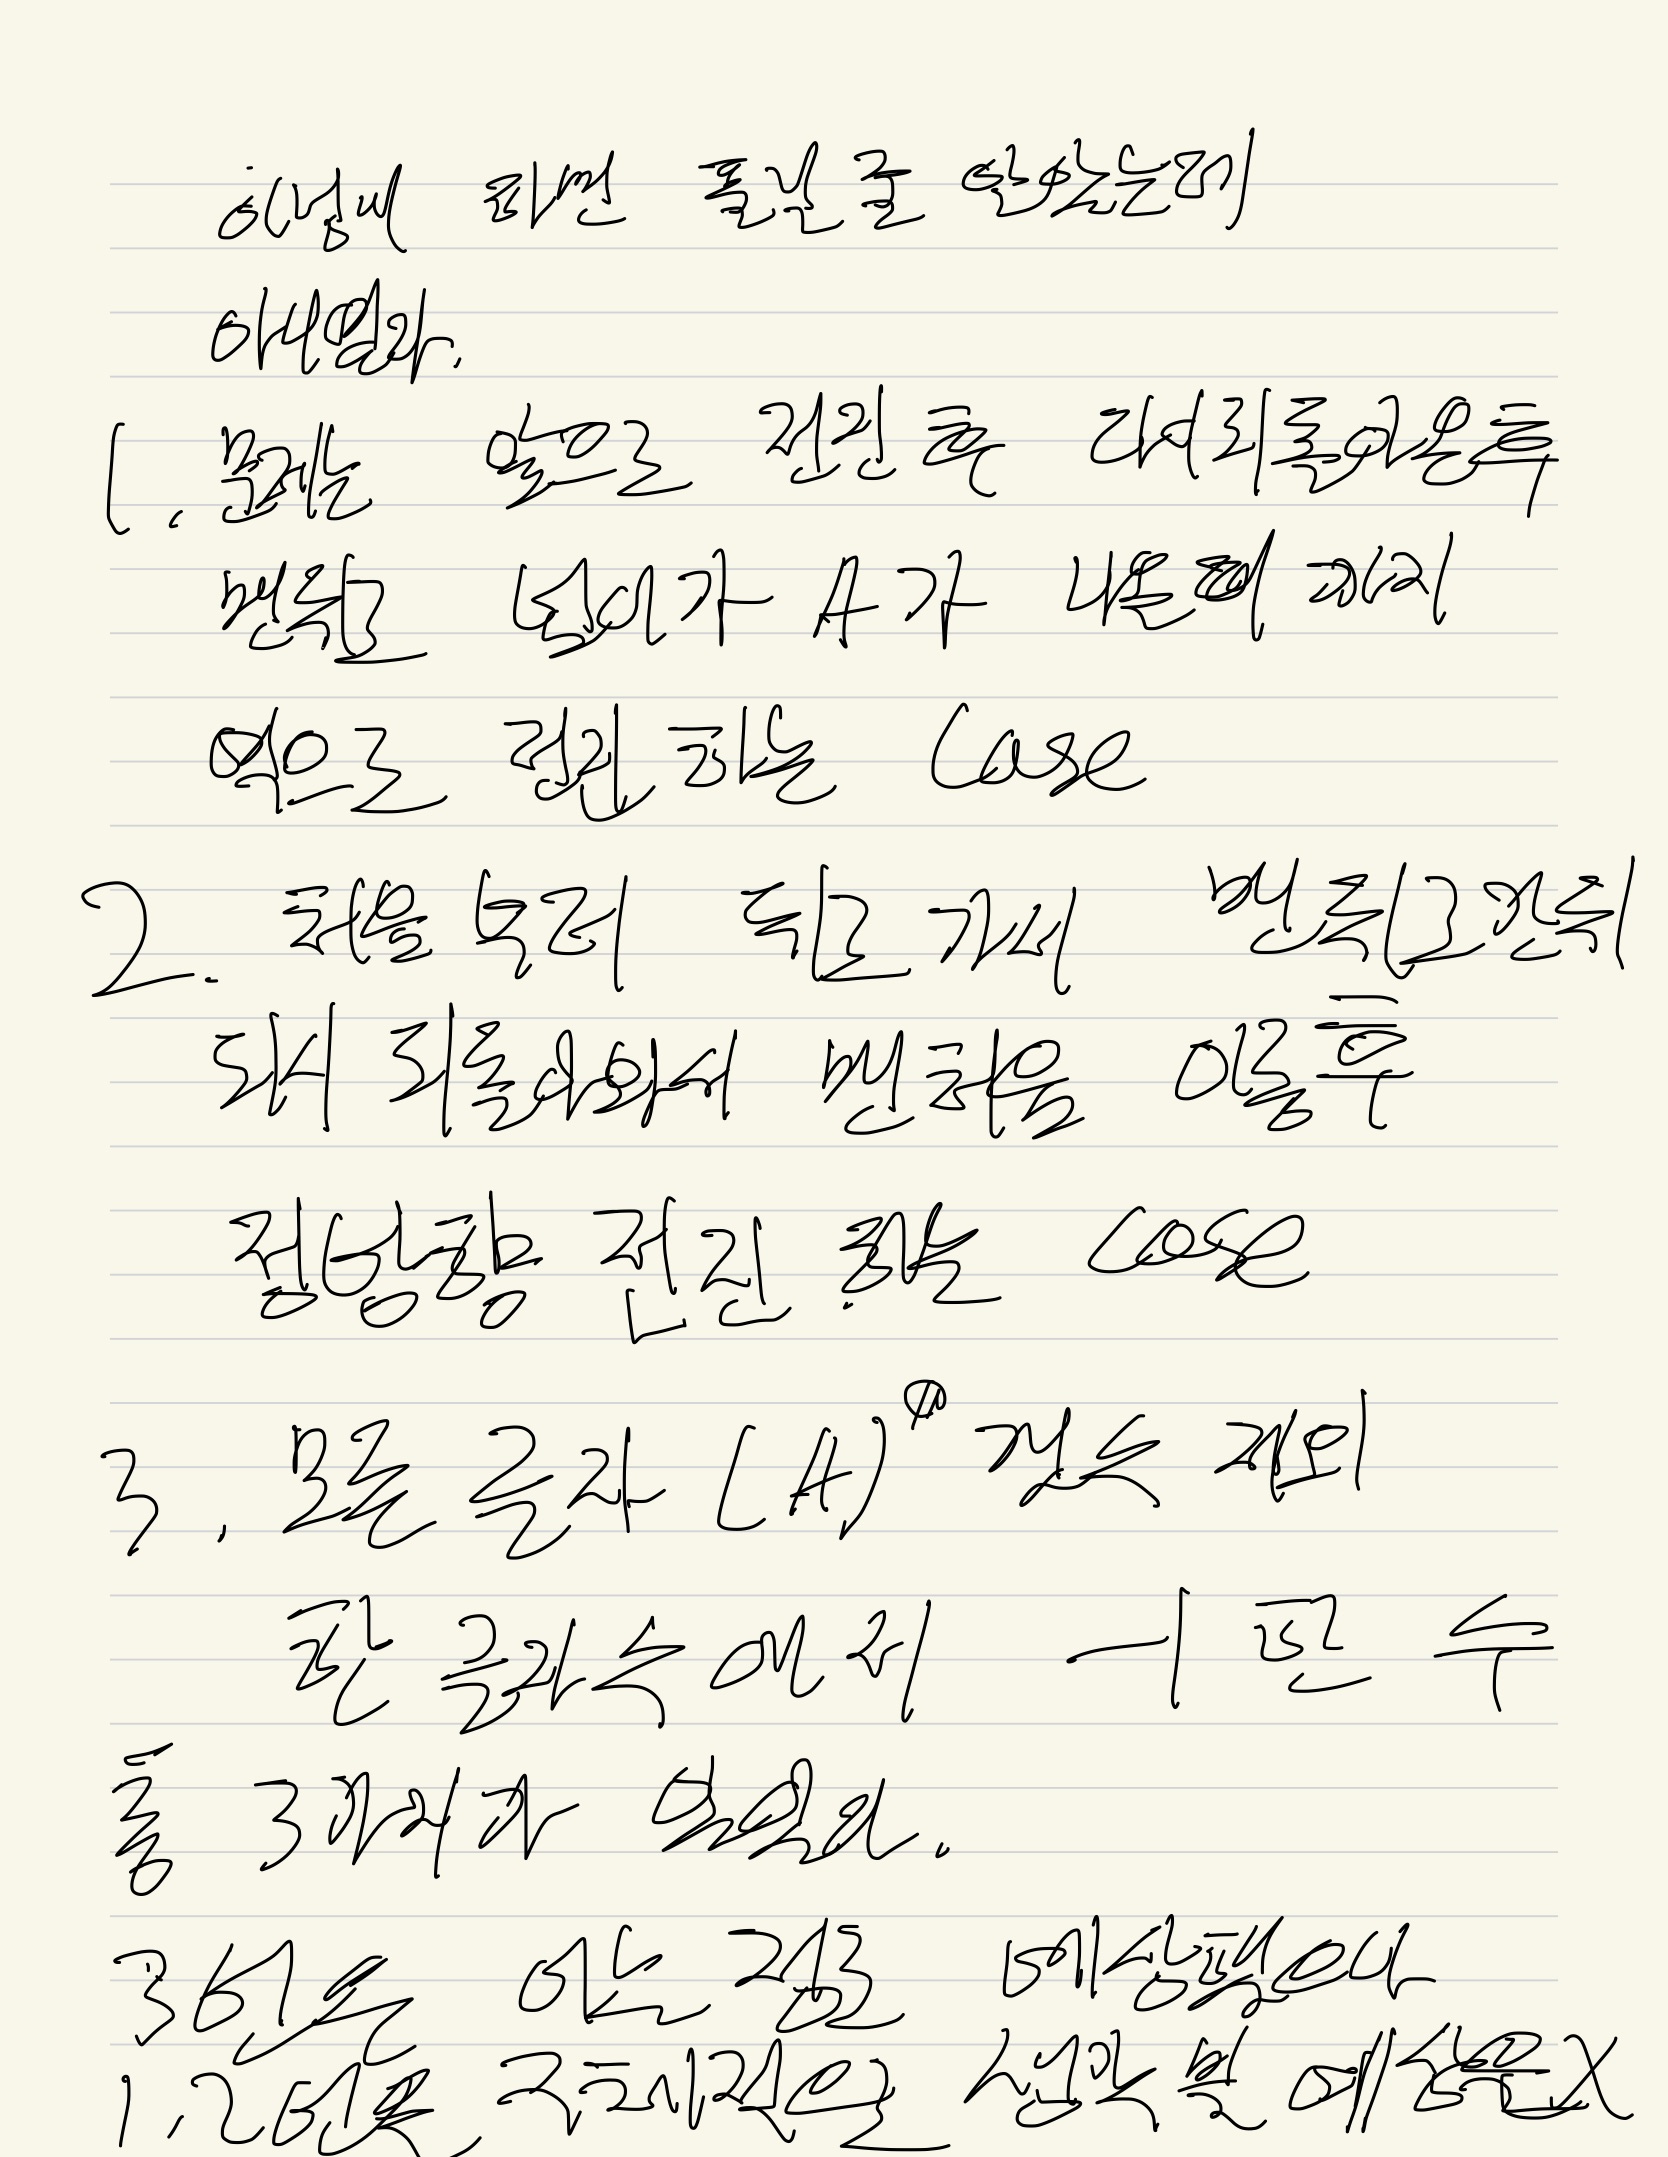 이렇게 하면 풀릴 줄 알았는데
아니였다.
1. 문제는 앞으로 전진 후 다시 되돌아온 후
맨 뒤로 넘어가 A가 나올 때 까지
역으로 전진 하는 Case
2. 처음부터 뒤로 가서 맨 뒤로 간 뒤
다시 되돌아와서 맨 처음 이동 후
정방향 전진 하는 Case
3. 모든 글자 (A) 갯수 제외
한 글자수에서 -1 한 수
총 3가지가 있었다.
3번은 어느 정도 예상했으나
1, 2번은 구체적으로 생각을 예상을 X